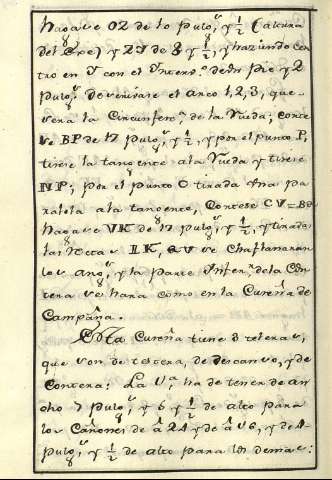 hagase OZ de 10 pulg.s y 1/2 (altura
del Exe) y ZY de 8 y 1/2, y haziendo cen
tro en Y con el Yntervº. de Un pie y 2
pulg.s Descrivase el arco 1, 2, 3, que
sera la Circunferencª. de la Rueda; Corte
se BP de 17 pulg.s y 1/2, y por el punto P,
tirese la tangente a la Rueda y tirese
NP; por el punto C tirada Una pa
ralela a la tangente, Cortese CV = BP
hagase VK de 12 pulg.s y 1/2, y tiradas
las Rectas IK, se Chaflanaran
los ang.s y la parte Ynferª. de la Con
tera se hara como en la Cureña de
Campaña.
Esta Cureña tiene 3 teleras,
que son de testera, de descanso, y de
Contera: La 1ª. ha de tener de an
cho 7 pulg.s y 6 y 1/2 de alto para
los Cañones de â 24 y de â 16, y de 4
pulg.s y 1/2 de alto para los demas: